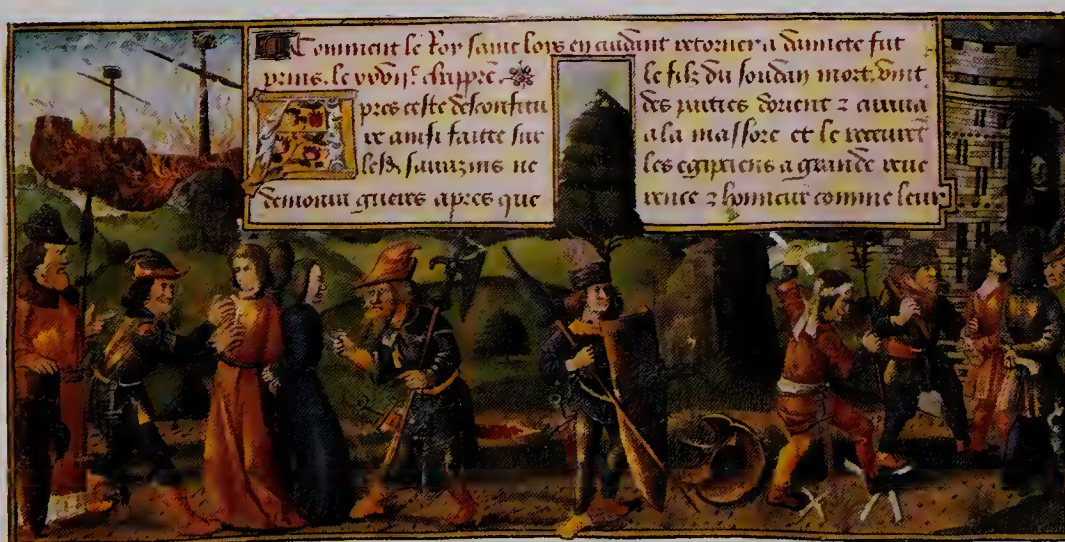 Comment le Roy saint Loys en cuidant retorner a damiete fut
prins. le chappr̄e
Apres ceste desconfitu
re ainsi faitte sur
lesd. sarrazins ne
demoura gueres apres que
le filz du soudan mort. vint
des parties dorient ⁊ arriua
a la massore et le receurēt
les egipciens a grande reue
rence ⁊ honneur comme leur